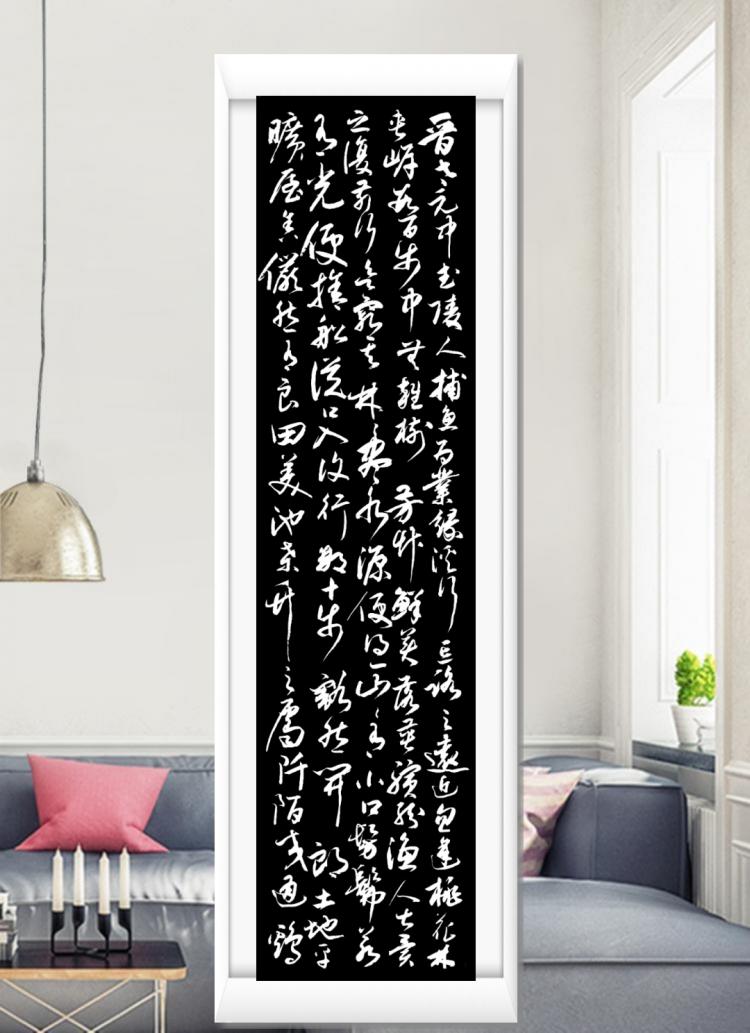 晉太元中武陵人捕魚為業緣溪行忘路之遠近忽逢桃花林
夾岸數百步中無雜樹芳草鮮美落英繽紛漁人甚異
之復前行欲窮其林林盡水源便得一山山有小口髣髴若
有光便捨船從口入復行數十步豁然開朗土地平
曠屋舍儼然有良田美池桑竹之屬阡陌交通鷄